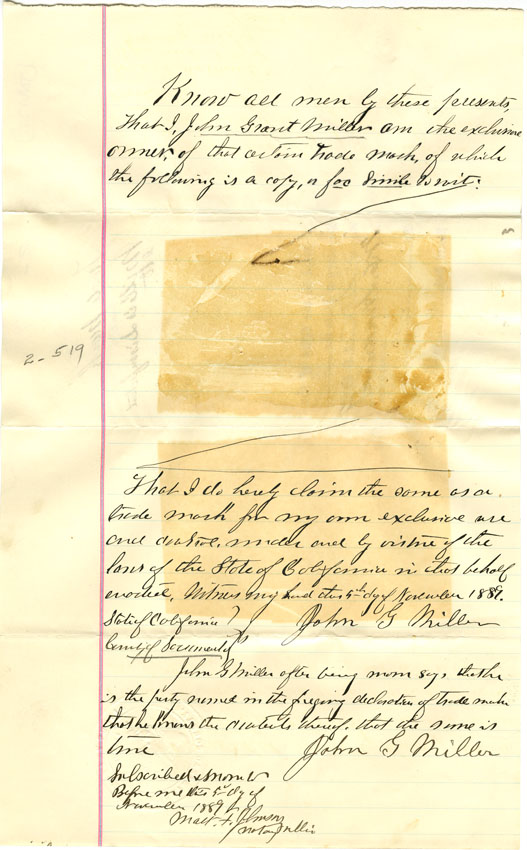 Know all men by these presents,
That I, John Grant Miller am the exclusive
owner, of that certain trade mark, of which
the following is a copy, or fac simile to wit:
2-519
That I do hereby claim the same as a
trade mark for my own exclusive use
and , under and by virtue of the
laws of the State of California in that behalf
enacted. Witness my hand this 5th dy of November 1889.
State of California } John G Miller
County of Sacramento
John G Miller after being sworn says that he
is the party named in the foregoing declaration of trade mark
that he knows the contents thereof, that the same is
true John G Miller
Subscribed & sworn to
Before me this 5th dy of
November 1889
Johnson
Notary Public